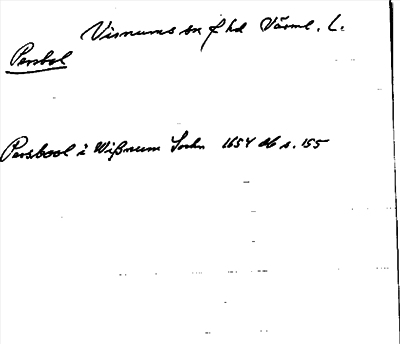 Visnums sn f hd Värml. L.
Persbol
Persbool i Wißnum Sochn 1654 db s. 155